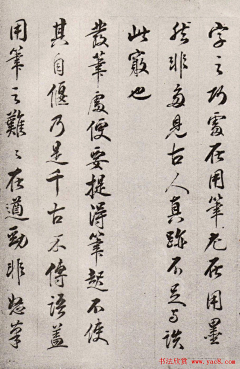 字之巧處在用筆尤在用墨
然非多見古人真跡不足與談
此竅也
發筆處便要提得筆起不使
其自偃乃是千古不傳語蓋
用筆之難難在遒勁非怒筆
书法欣赏
www.yac8.com